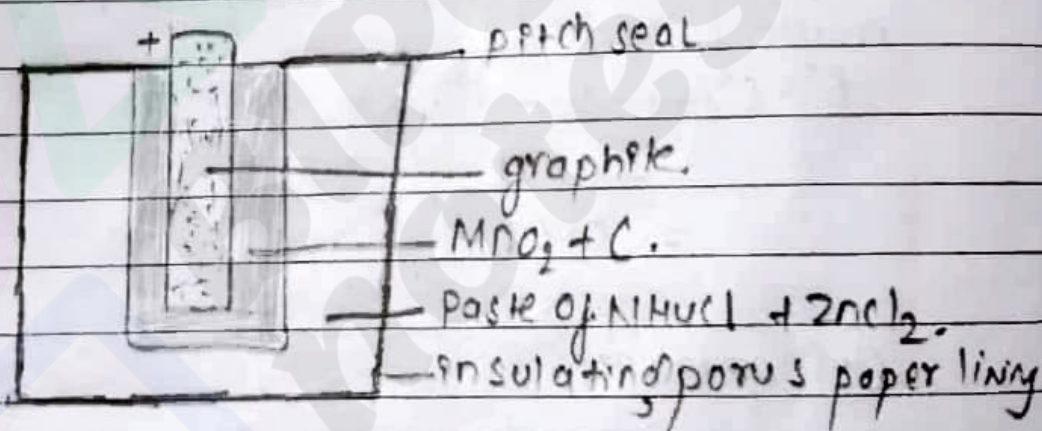 +
pitch seal
graphite.
MnO2 + C.
Paste of NH4Cl + ZnCl2.
insulating porus paper lining